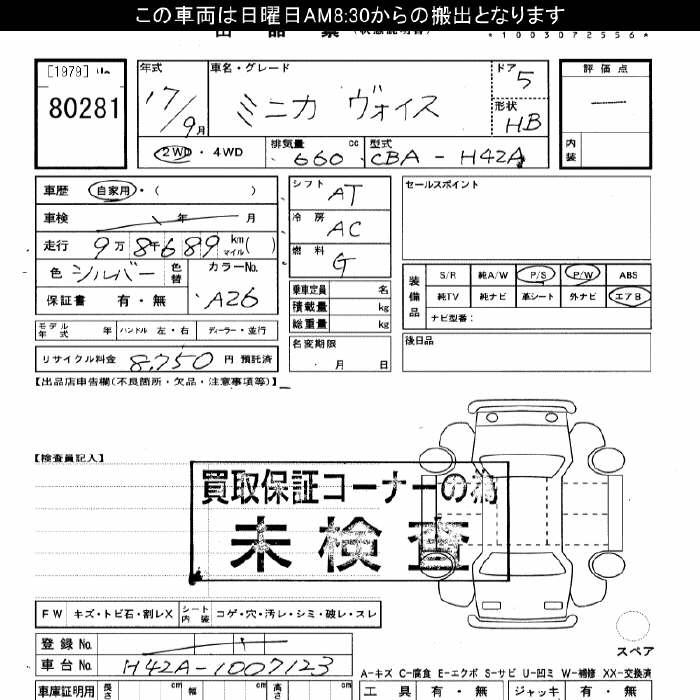 この車両は日曜日AM8:30からの搬出となります
*1003072556*
[1979]
80281
年式
17/9月
車名・グレード
ミニカ ヴォイス
ドア 5
形状 HB
評価点
―
内装
2WD・4WD
排気量 660 cc
型式 CBA-H42A
車歴 自家用・( )
車検 年 月
走行 9万8千689 km マイル( )
色 シルバー 色替
カラーNo. A26
保証書 有・無
シフト AT
冷房 AC
燃料 G
乗車定員 名
積載量 kg
総重量 kg
名変期限
・月 日
セールスポイント
装備品
S/R 純A/W P/S P/W ABS
純TV 純ナビ 革シート 外ナビ エアB
ナビ型番:
後日品
モデル年式 年 ハンドル 左・右 ディーラー・並行
リサイクル料金 8,750 円 預託済
【出品店申告欄(不良箇所・欠品・注意事項等)】
【検査員記入】
買取保証コーナーの為
未検査
FW キズ・トビ石・割レX シート内装 コゲ・穴・汚レ・シミ・破レ・スレ
登録No.
車台No. H42A-1007123
スペア
A-キズ C-腐食 E-エクボ S-サビ U-凹ミ W-補修 XX-交換済
車庫証明用 長さ cm 幅 cm 高さ cm
工具 有・無 ジャッキ 有・無